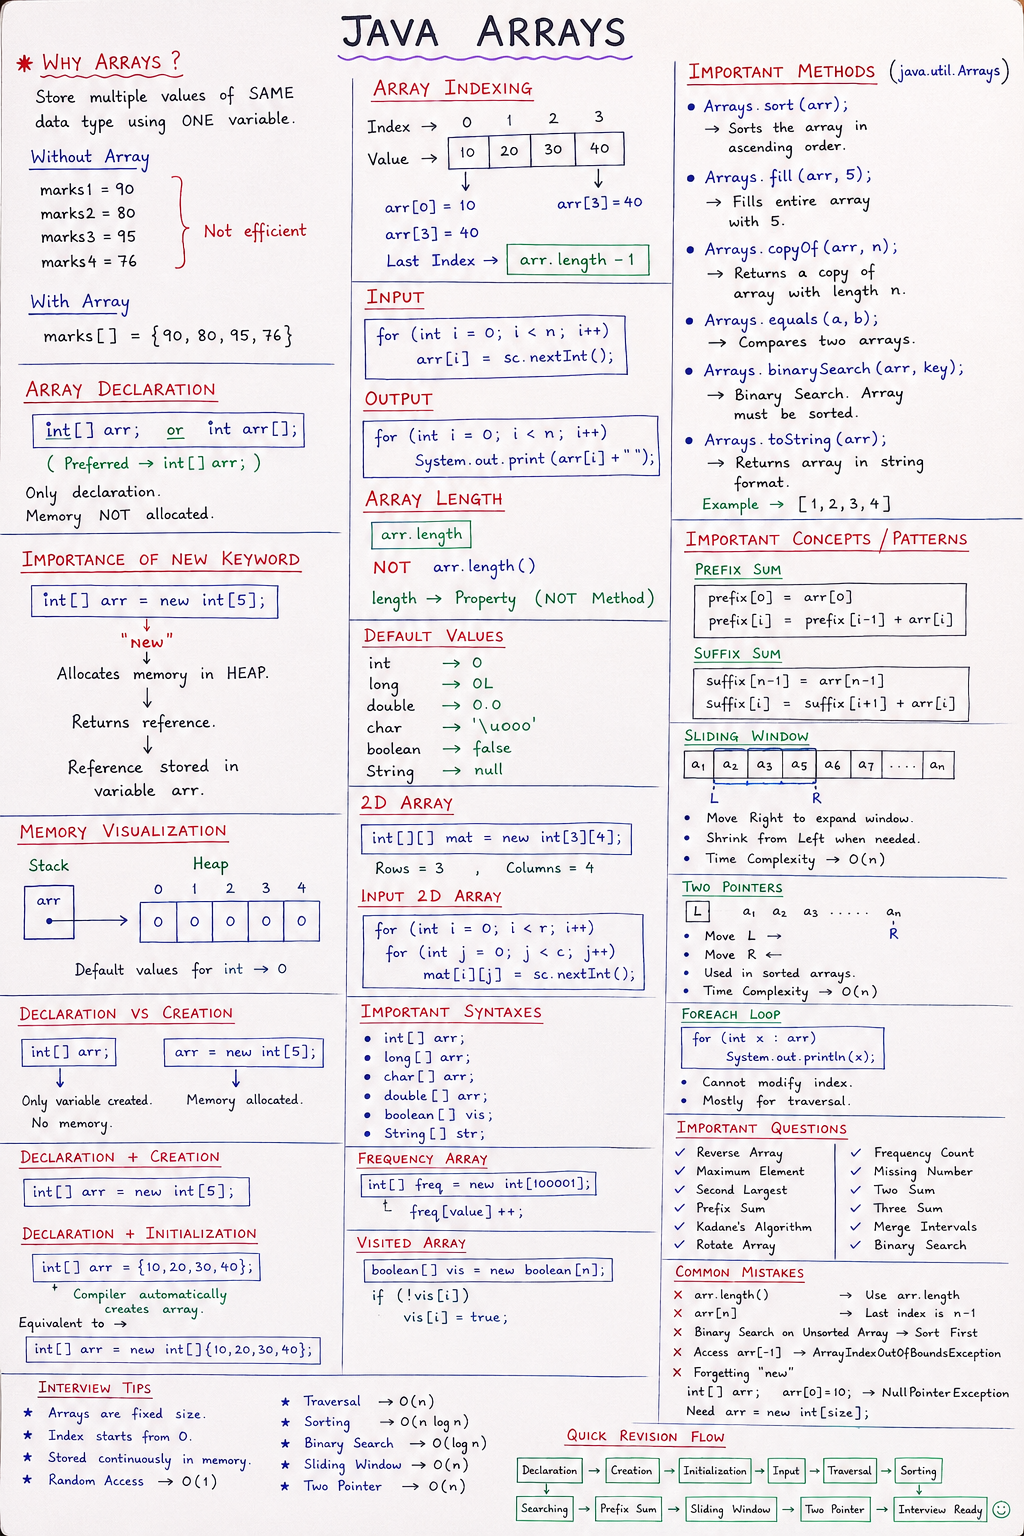 JAVA ARRAYS
✷ WHY ARRAYS ?
Store multiple values of SAME
data type using ONE variable.
Without Array
marks1 = 90
marks2 = 80
marks3 = 95
marks4 = 76
Not efficient
With Array
marks[] = {90, 80, 95, 76}
ARRAY DECLARATION
int[] arr; or int arr[];
( Preferred → int[] arr; )
Only declaration.
Memory NOT allocated.
IMPORTANCE OF NEW KEYWORD
int[] arr = new int[5];
↓
"New"
↓
Allocates memory in HEAP.
↓
Returns reference.
↓
Reference stored in
variable arr.
MEMORY VISUALIZATION
Stack Heap
arr
0 1 2 3 4
0 0 0 0 0
Default values for int → 0
DECLARATION VS CREATION
int[] arr; arr = new int[5];
↓ ↓
Only variable created. Memory allocated.
No memory.
DECLARATION + CREATION
int[] arr = new int[5];
DECLARATION + INITIALIZATION
int[] arr = {10,20,30,40};
Compiler automatically
creates array.
Equivalent to →
int[] arr = new int[]{10,20,30,40};
ARRAY INDEXING
Index → 0 1 2 3
Value → 10 20 30 40
↓ ↓
arr[0] = 10 arr[3] = 40
arr[3] = 40
Last Index → arr.length - 1
INPUT
for (int i = 0; i < n; i++)
arr[i] = sc.nextInt();
OUTPUT
for (int i = 0; i < n; i++)
System.out.print (arr[i] + " ");
ARRAY LENGTH
arr.length
NOT arr.length()
length → Property (NOT Method)
DEFAULT VALUES
int → 0
long → 0L
double → 0.0
char → '\u000'
boolean → false
String → null
2D ARRAY
int[][] mat = new int[3][4];
Rows = 3 , Columns = 4
INPUT 2D ARRAY
for (int i = 0; i < r; i++)
for (int j = 0; j < c; j++)
mat[i][j] = sc.nextInt();
IMPORTANT SYNTAXES
• int[] arr;
• long[] arr;
• char[] arr;
• double[] arr;
• boolean[] vis;
• String[] str;
FREQUENCY ARRAY
int[] freq = new int[100001];
freq[value] ++;
VISITED ARRAY
boolean[] vis = new boolean[n];
if (!vis[i])
vis[i] = true;
IMPORTANT METHODS (java.util.Arrays)
• Arrays.sort (arr);
→ Sorts the array in
ascending order.
• Arrays.fill (arr, 5);
→ Fills entire array
with 5.
• Arrays.copyOf (arr, n);
→ Returns a copy of
array with length n.
• Arrays.equals (a, b);
→ Compares two arrays.
• Arrays.binarySearch (arr, key);
→ Binary Search. Array
must be sorted.
• Arrays.toString (arr);
→ Returns array in string
format.
Example → [1,2,3,4]
IMPORTANT CONCEPTS / PATTERNS
PREFIX SUM
prefix[0] = arr[0]
prefix[i] = prefix[i-1] + arr[i]
SUFFIX SUM
suffix[n-1] = arr[n-1]
suffix[i] = suffix[i+1] + arr[i]
SLIDING WINDOW
a1 a2 a3 a5 a6 a7 .... an
L R
• Move Right to expand window.
• Shrink from Left when needed.
• Time Complexity → O(n)
TWO POINTERS
L a1 a2 a3 ..... an
R
• Move L →
• Move R ←
• Used in sorted arrays.
• Time Complexity → O(n)
FOREACH LOOP
for (int x : arr)
System.out.println(x);
• Cannot modify index.
• Mostly for traversal.
IMPORTANT QUESTIONS
✓ Reverse Array
✓ Maximum Element
✓ Second Largest
✓ Prefix Sum
✓ Kadane's Algorithm
✓ Rotate Array
✓ Frequency Count
✓ Missing Number
✓ Two Sum
✓ Three Sum
✓ Merge Intervals
✓ Binary Search
COMMON MISTAKES
✗ arr.length() → Use arr.length
✗ arr[n] → Last index is n-1
✗ Binary Search on Unsorted Array → Sort First
✗ Access arr[-1] → ArrayIndexOutOfBoundsException
✗ Forgetting "new"
int[] arr; arr[0]=10; → NullPointerException
Need arr = new int[size];
INTERVIEW TIPS
★ Arrays are fixed size.
★ Index starts from 0.
★ Stored continuously in memory.
★ Random Access → O(1)
★ Traversal → O(n)
★ Sorting → O(n log n)
★ Binary Search → O(log n)
★ Sliding Window → O(n)
★ Two Pointer → O(n)
QUICK REVISION FLOW
Declaration → Creation → Initialization → Input → Traversal → Sorting
↓ ↓
Searching → Prefix Sum → Sliding Window → Two Pointer → Interview Ready ☺